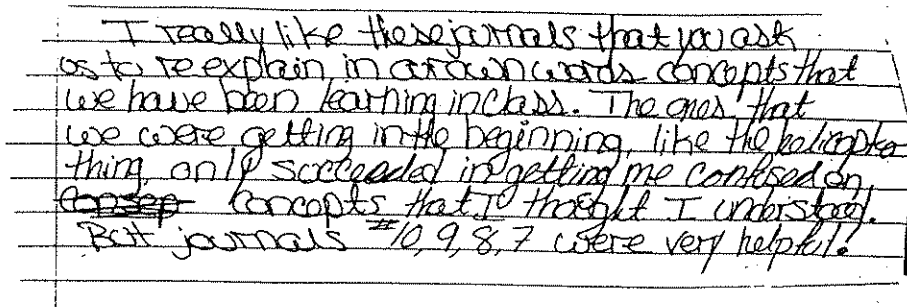 I really like these journals that you ask
us to re explain in our own words concepts that
we have been learning in class. The ones that
we were getting in the beginning, like the helicopter
thing, only succeeded in getting me confused on
concepts that I thought I understood.
But journals #10,9,8,7 were very helpful!